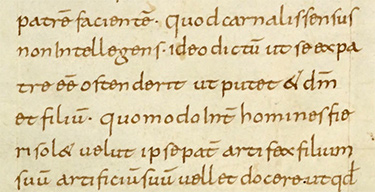 patrē facientē. quod carnalis sensus
non intellegens. ideo dictū ut se expa
tre eē ostenderit ut putet & dm̄
et filiū. quomodo int̄ homines fie
ri sol& velut ipse pat̄ artifex filium
suū artificiū suū vellet docere. ut qd̄